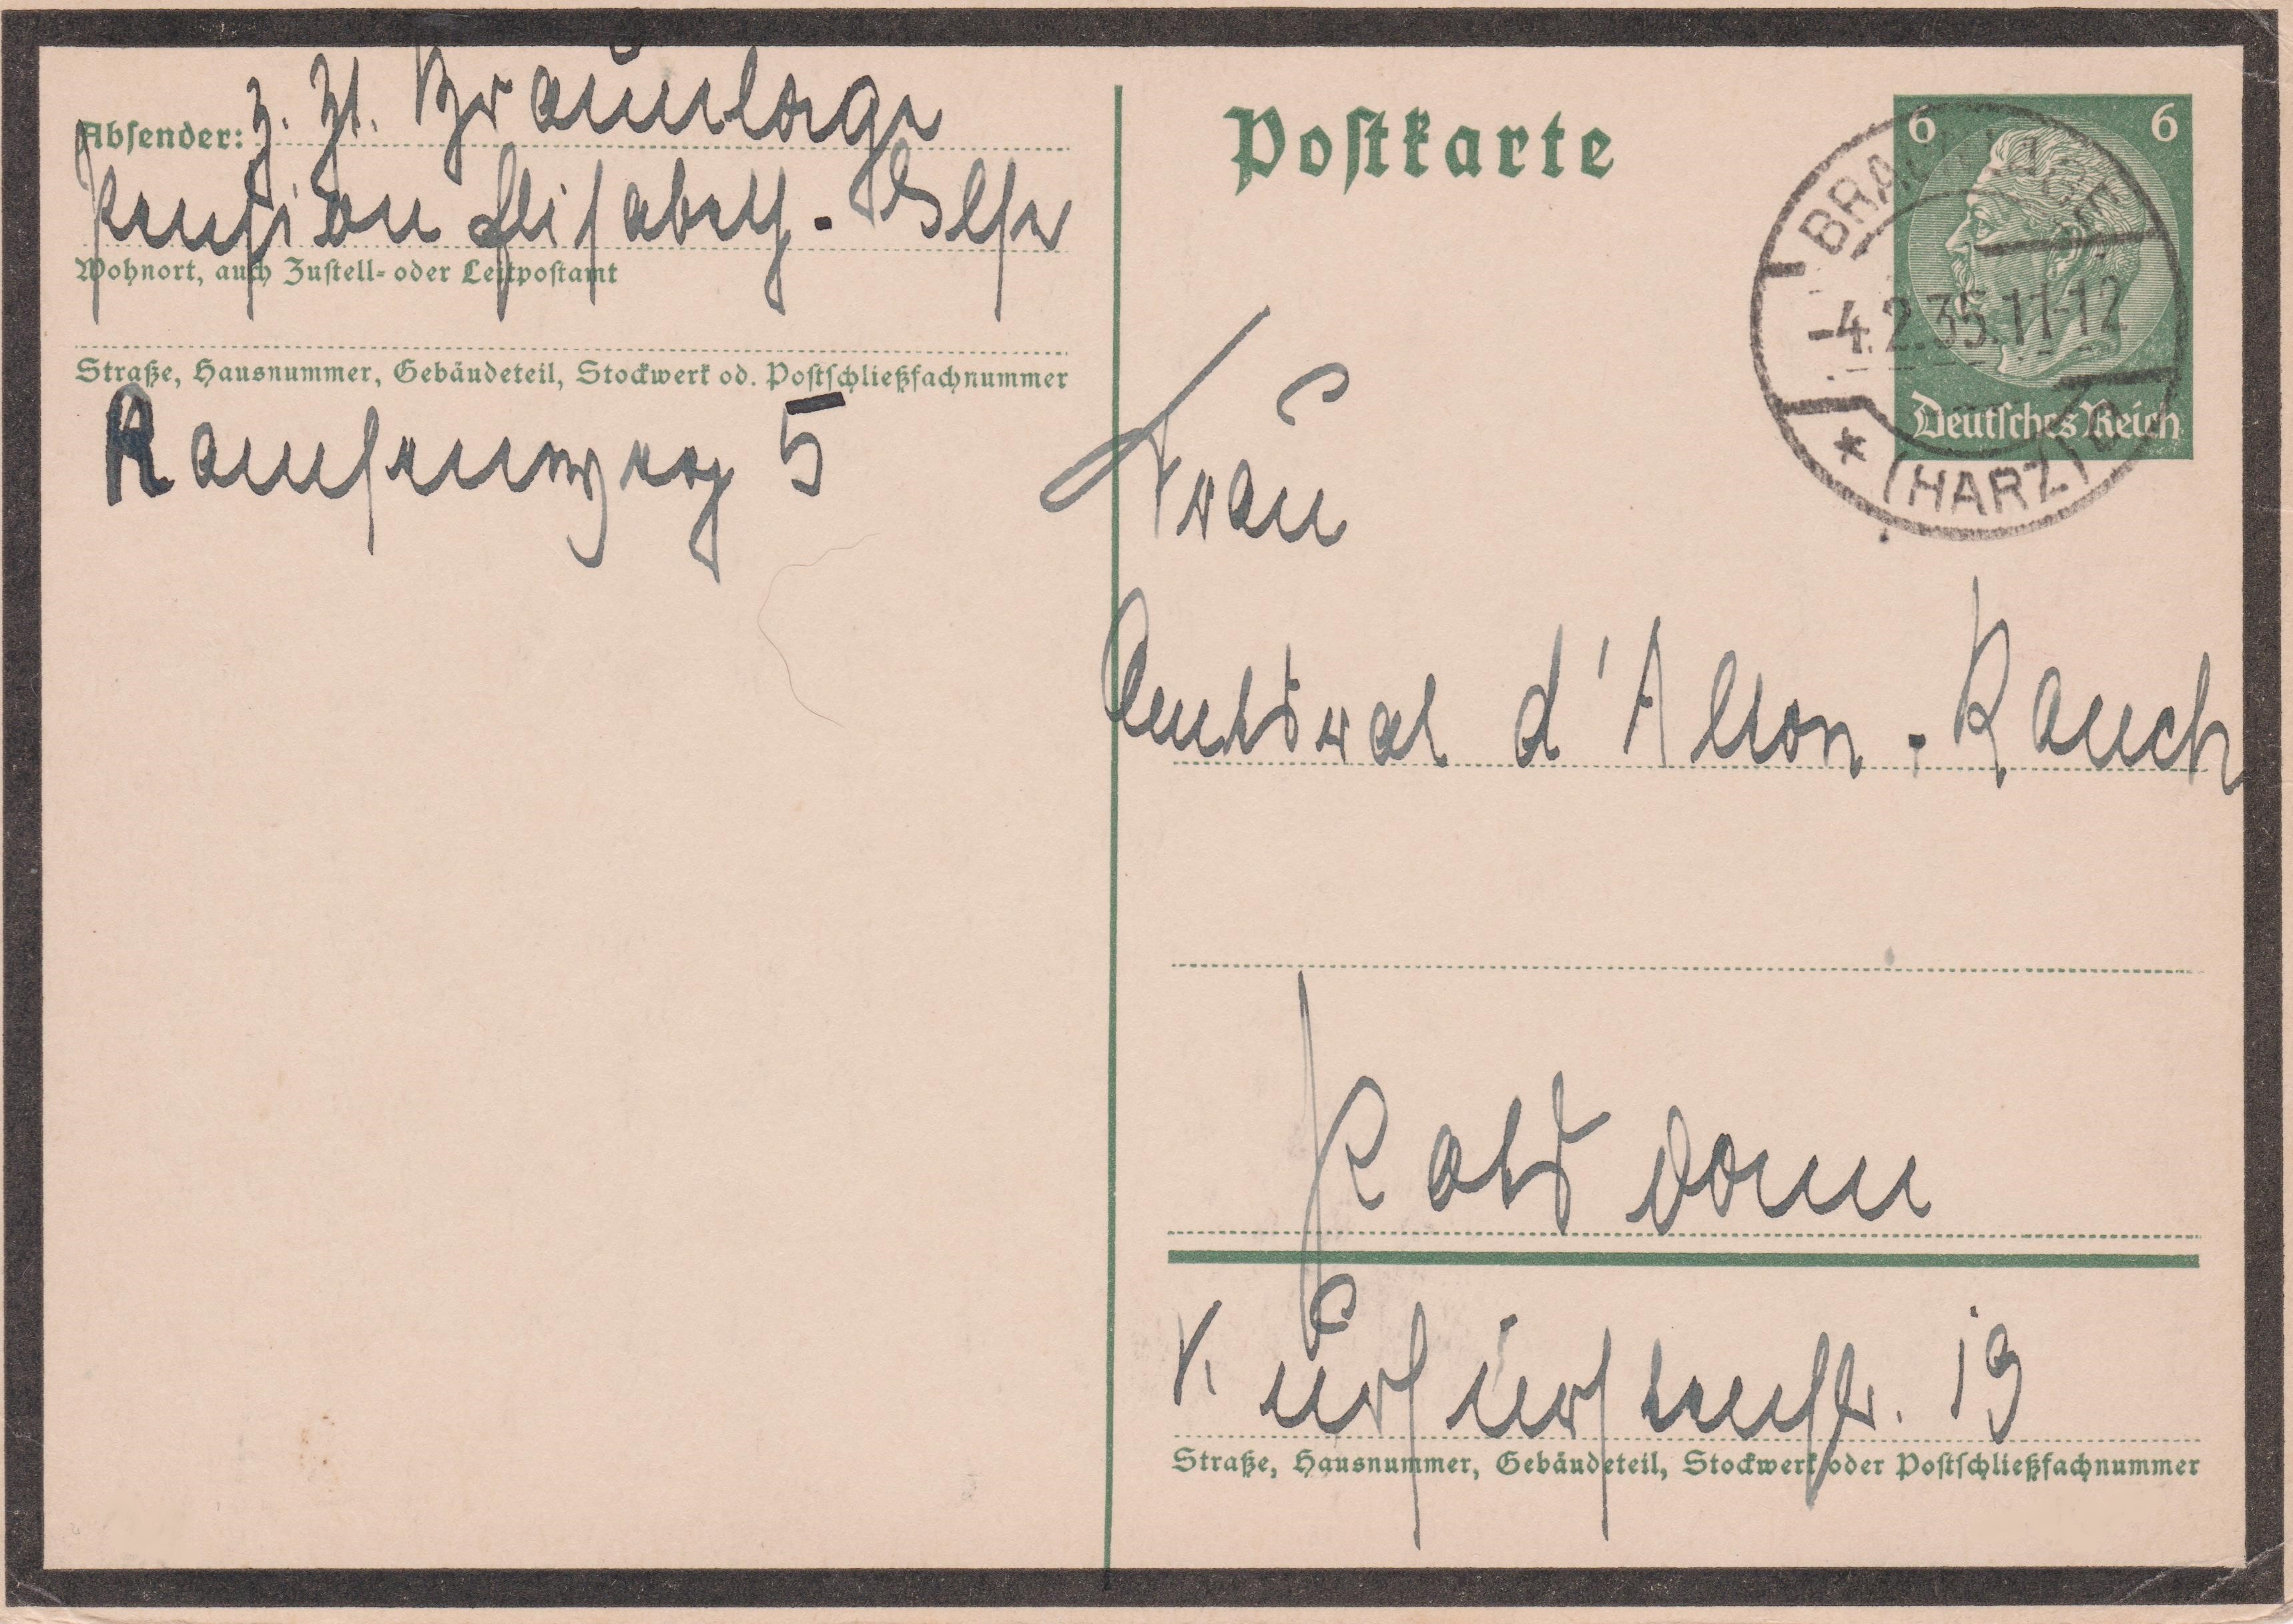 Absender: z. Zt. Braunlage
Pension Elisabeth-Else
Wohnort, auch Zustell- oder Leitpostamt
Straße, Hausnummer, Gebäudeteil, Stockwerk od. Postschließfachnummer
Ramsenweg 5
Postkarte
6 6
Deutsches Reich
BRAUNLAGE
-4.2.35.11-12
* (HARZ)
Frau
Amtsrat d'Alton-Rauch
Potsdam
Kurfürstenstr. 19
Straße, Hausnummer, Gebäudeteil, Stockwerk oder Postschließfachnummer